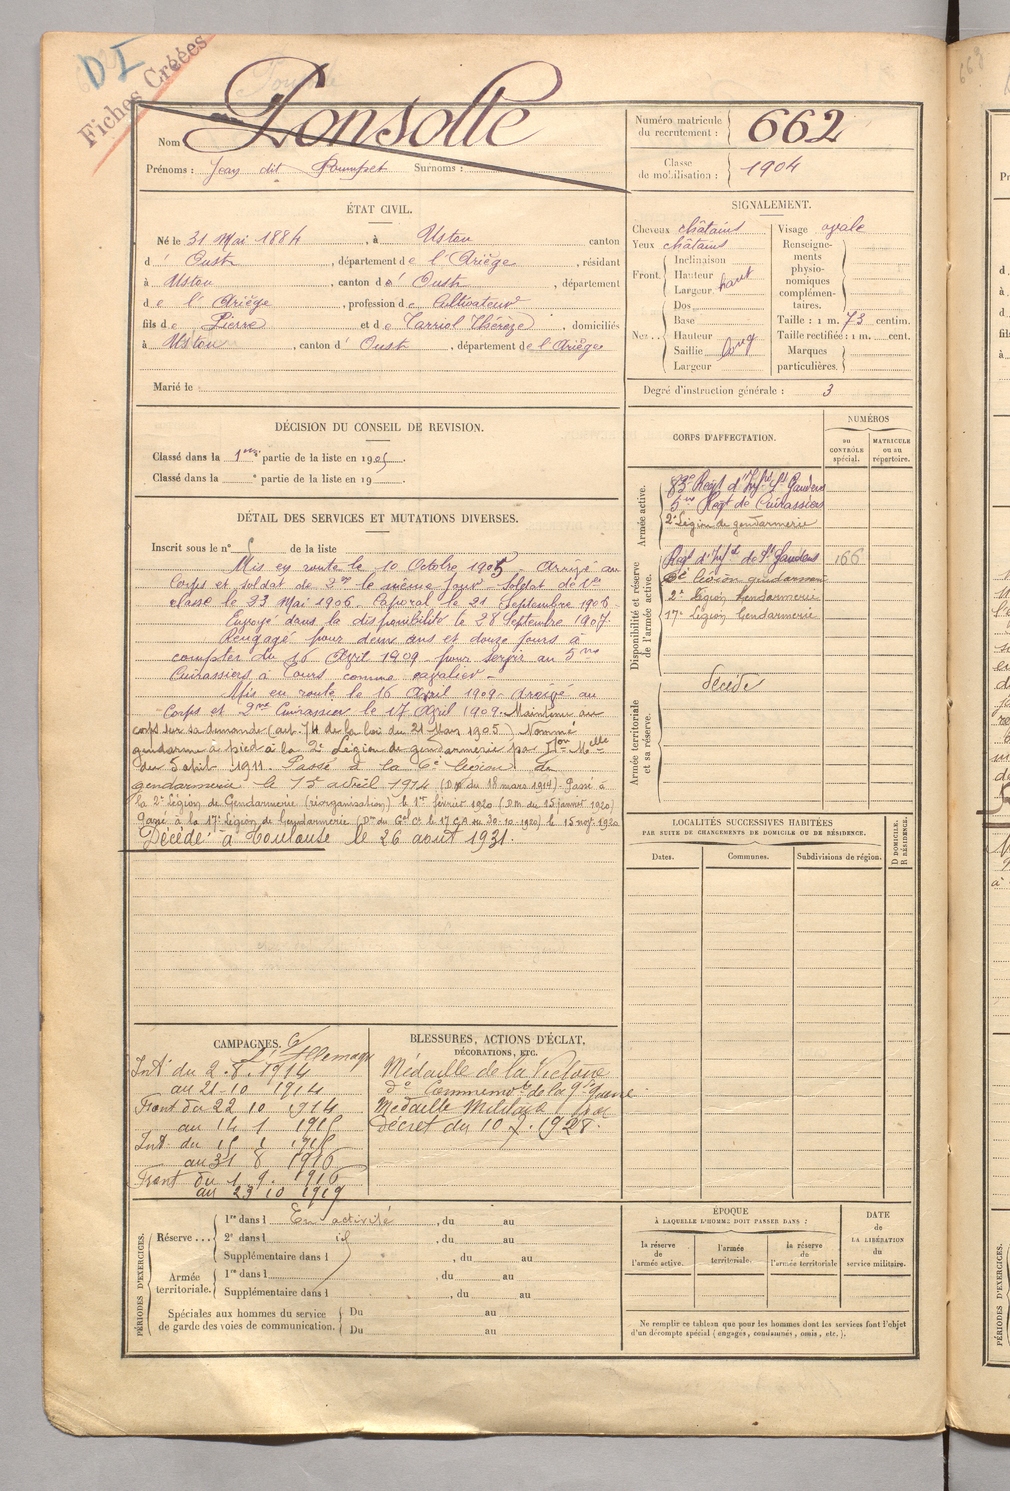 D I
Fiches Créées
Nom Ponsolle
Prénoms : Jean dit Poumpet Surnoms :
Numéro matricule du recrutement : 662
Classe de mobilisation : 1904
ÉTAT CIVIL.
Né le 31 Mai 1884, à Ustou canton
d' Oust, département de l'Ariège, résidant
à Ustou, canton d' Oust, département
de l'Ariège, profession de Cultivateur
fils de Pierre et de Carriol Thérèze, domiciliés
à Ustou, canton d' Oust, département de l'Ariège
Marié le
SIGNALEMENT.
Cheveux châtains
Yeux châtains
Front. Inclinaison
Hauteur haut
Largeur
Nez.. Dos
Base
Hauteur
Saillie long
Largeur
Visage ovale
Renseignements physionomiques complémentaires.
Taille : 1 m. 73 centim.
Taille rectifiée : 1 m. cent.
Marques particulières.
Degré d'instruction générale : 3
DÉCISION DU CONSEIL DE REVISION.
Classé dans la 1ère partie de la liste en 1905.
Classé dans la e partie de la liste en 19
DÉTAIL DES SERVICES ET MUTATIONS DIVERSES.
Inscrit sous le n° de la liste
Mis en route le 10 Octobre 1905. Arrivé au
Corps et soldat de 2me le même jour. Soldat de 1re
classe le 23 Mai 1906. Caporal le 21 Septembre 1906
Envoyé dans la disponibilité le 28 Septembre 1907.
Rengagé pour deux ans et douze jours à
compter du 16 Avril 1909 pour servir au 5me
Cuirassiers à Tours comme cavalier.
Mis en route le 16 Avril 1909. Arrivé au
Corps et 2me Cuirassier le 17 Avril 1909. Maintenu au
corps sur sa demande (art. 74 de la loi du 21 Mars 1905) Nommé
gendarme à pied à la 2e Légion de gendarmerie par Don Mlle
du 5 avril 1911. Passé à la 6e légion de
gendarmerie le 1er avril 1914 (DM du 18 mars 1914). Passé à
la 2e Légion de Gendarmerie (réorganisation) le 1er février 1920 (DM du 15 janvier 1920)
Passé à la 17e Légion de Gendarmerie (Don du Gal Ct le 17 CA du 30-10-1920) le 15 nov. 1920
Décédé à Toulouse le 26 août 1931.
CORPS D'AFFECTATION.
NUMÉROS
DU CONTRÔLE spécial.
MATRICULE ou au répertoire.
Armée active.
83e Regt d'Infrie St Gaudens
5me Regt de Cuirassiers
2e Légion de gendarmerie
Disponibilité et réserve de l'armée active.
Regt d'Infie de St Gaudens 166
6e légion gendarmerie
2e Légion Gendarmerie
17e Légion Gendarmerie
Armée territoriale et sa réserve.
décédé
LOCALITÉS SUCCESSIVES HABITÉES
PAR SUITE DE CHANGEMENTS DE DOMICILE OU DE RÉSIDENCE.
Dates. Communes. Subdivisions de région.
D DOMICILE. R RÉSIDENCE.
CAMPAGNES.
Ce l'Allemagne
Int du 2.8.1914
au 21-10 1914
Front du 22 10 1914
au 14 1 1915
Int. du 15 1 1915
au 31 8 1916
Front du 1. 9. 1916
au 23 10 1919
BLESSURES, ACTIONS D'ÉCLAT, DÉCORATIONS, ETC.
Médaille de la Victoire
do Commémotive de la Gde guerre
Médaille Militaire par
décret du 10.7.1928.
PÉRIODES D'EXERCICES.
Réserve .... 1re dans l En activité, du au
2e dans l , du au
Supplémentaire dans l , du au
Armée territoriale. 1re dans l , du au
Supplémentaire dans l , du au
Spéciales aux hommes du service de garde des voies de communication. Du au
Du au
ÉPOQUE
À LAQUELLE L'HOMME DOIT PASSER DANS :
la réserve de l'armée active.
l'armée territoriale.
la réserve de l'armée territoriale
DATE de LA LIBÉRATION du service militaire.
Ne remplir ce tableau que pour les hommes dont les services font l'objet
d'un décompte spécial (engagés, condamnés, omis, etc.).